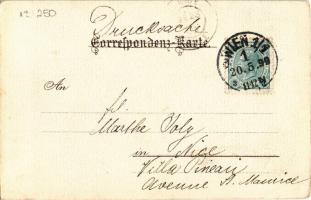 12·250
Drucksache
Correspondenz-Karte.
WIEN 1/1
1
20.5.98
An
Marthe Joly
in Nice
Villa Pineau
Avenue St. Maurice